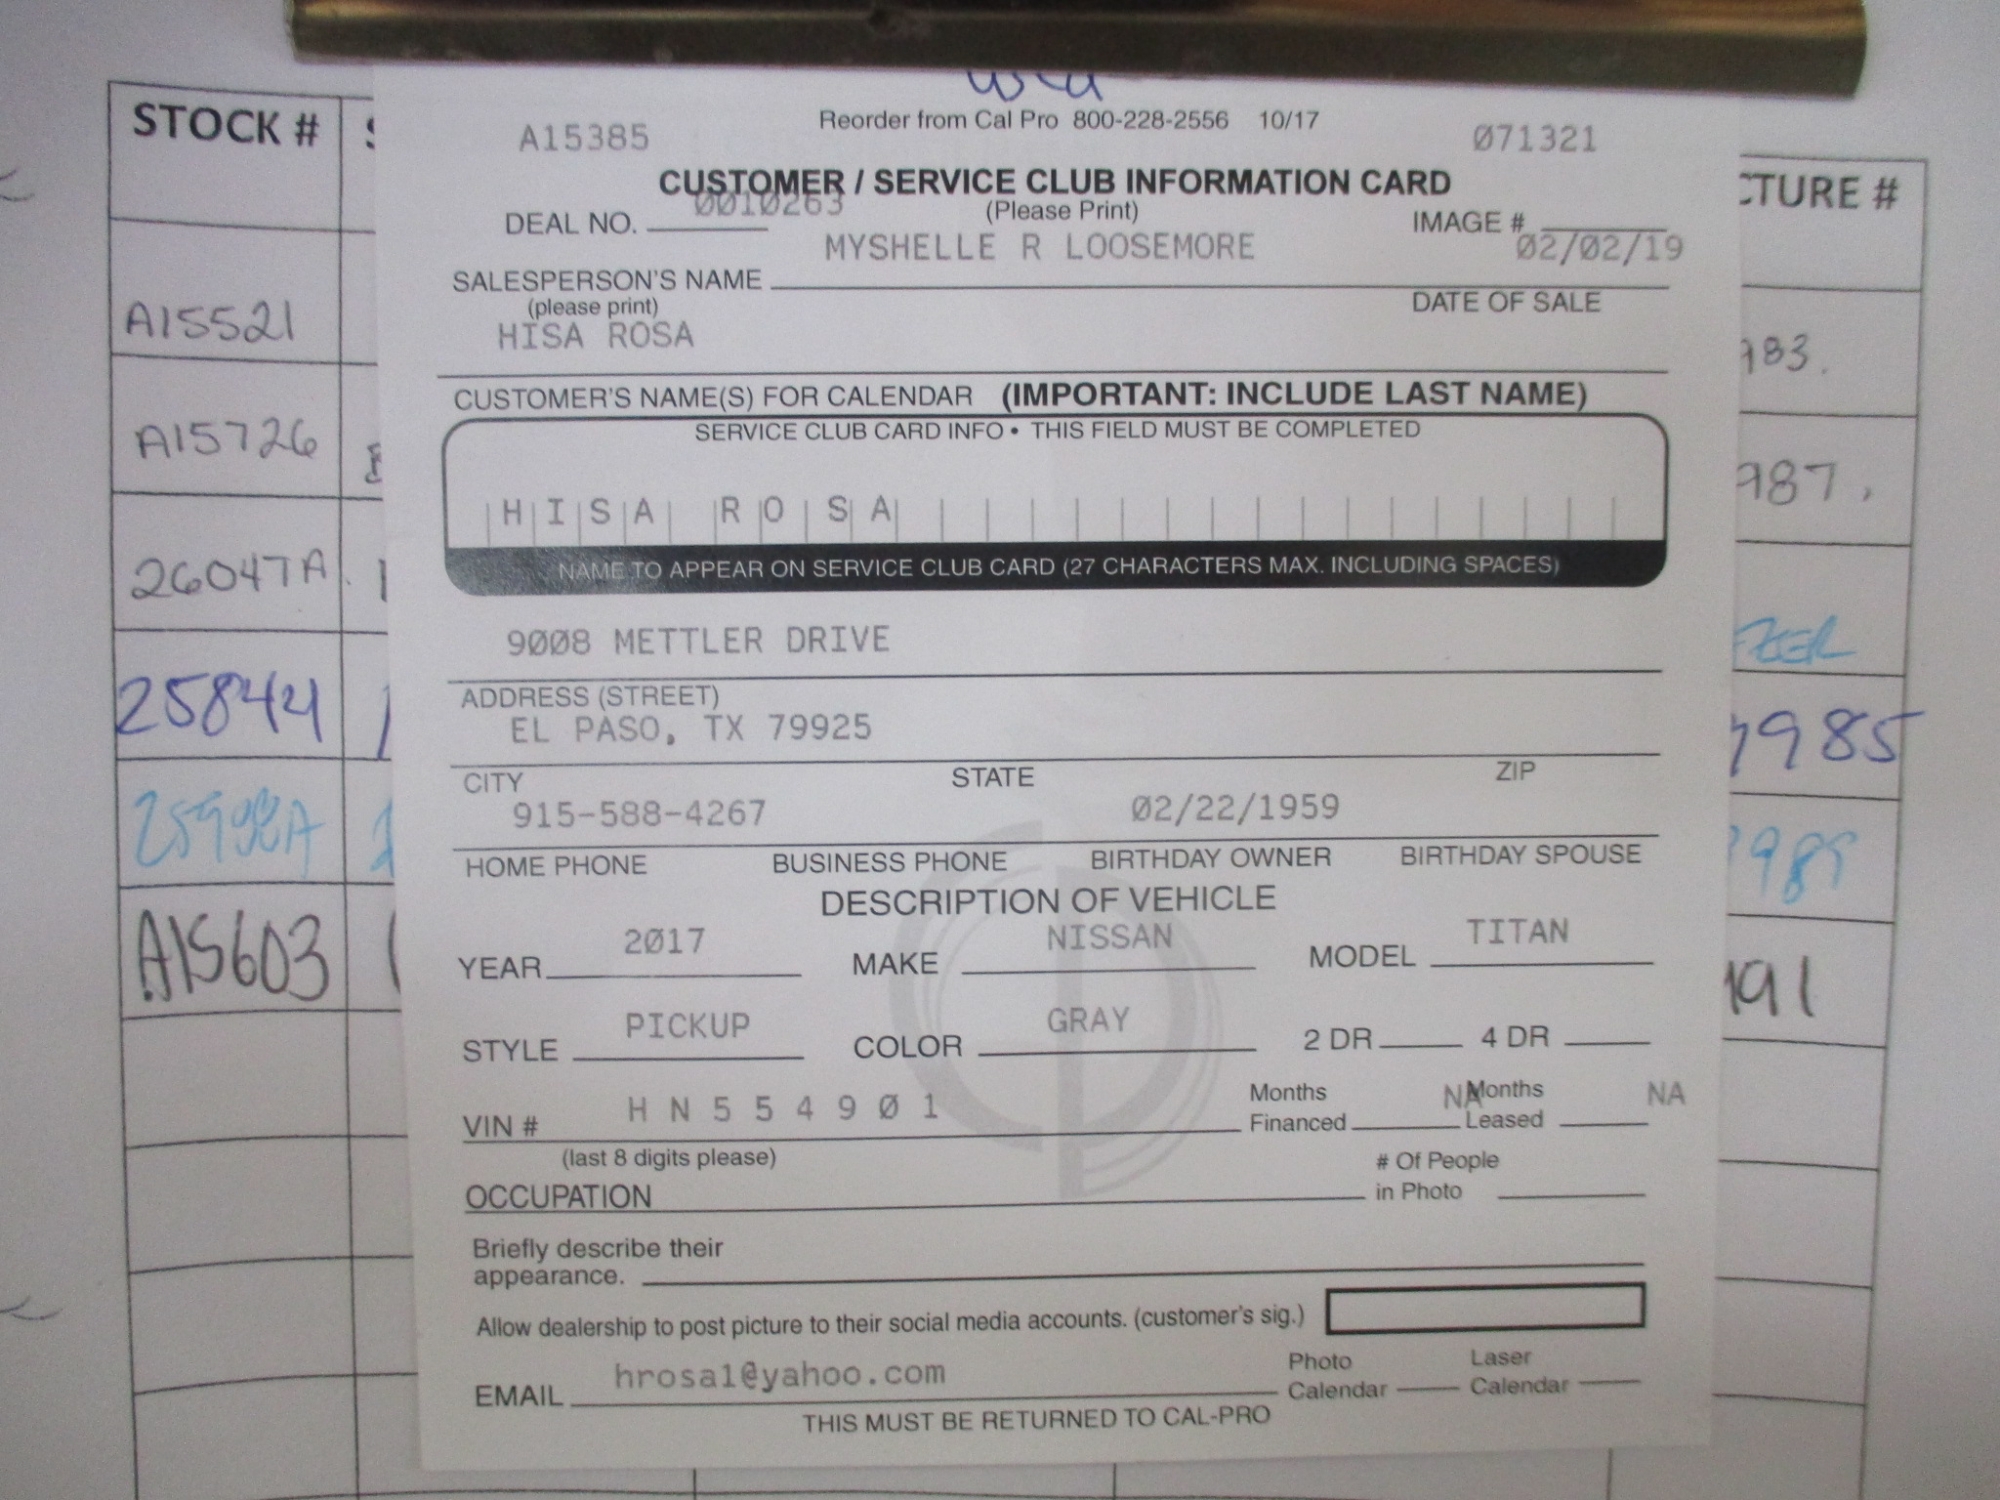 STOCK #
A15521
A15726
26047A
25844
A15603
CTURE #
983.
987.
985
989
991
A15385
Reorder from Cal Pro 800-228-2556 10/17
071321
CUSTOMER / SERVICE CLUB INFORMATION CARD
0010263
DEAL NO.
(Please Print)
IMAGE #
MYSHELLE R LOOSEMORE
02/02/19
SALESPERSON'S NAME
(please print)
DATE OF SALE
HISA ROSA
CUSTOMER'S NAME(S) FOR CALENDAR (IMPORTANT: INCLUDE LAST NAME)
SERVICE CLUB CARD INFO • THIS FIELD MUST BE COMPLETED
HISA ROSA
NAME TO APPEAR ON SERVICE CLUB CARD (27 CHARACTERS MAX. INCLUDING SPACES)
9008 METTLER DRIVE
ADDRESS (STREET)
EL PASO, TX 79925
CITY STATE ZIP
915-588-4267 02/22/1959
HOME PHONE BUSINESS PHONE BIRTHDAY OWNER BIRTHDAY SPOUSE
DESCRIPTION OF VEHICLE
YEAR 2017 MAKE NISSAN MODEL TITAN
STYLE PICKUP COLOR GRAY 2 DR 4 DR
VIN # H N 5 5 4 9 0 1 Months Financed NA Months Leased NA
(last 8 digits please)
OCCUPATION # Of People in Photo
Briefly describe their
appearance.
Allow dealership to post picture to their social media accounts. (customer's sig.)
EMAIL hrosa1@yahoo.com Photo Calendar Laser Calendar
THIS MUST BE RETURNED TO CAL-PRO